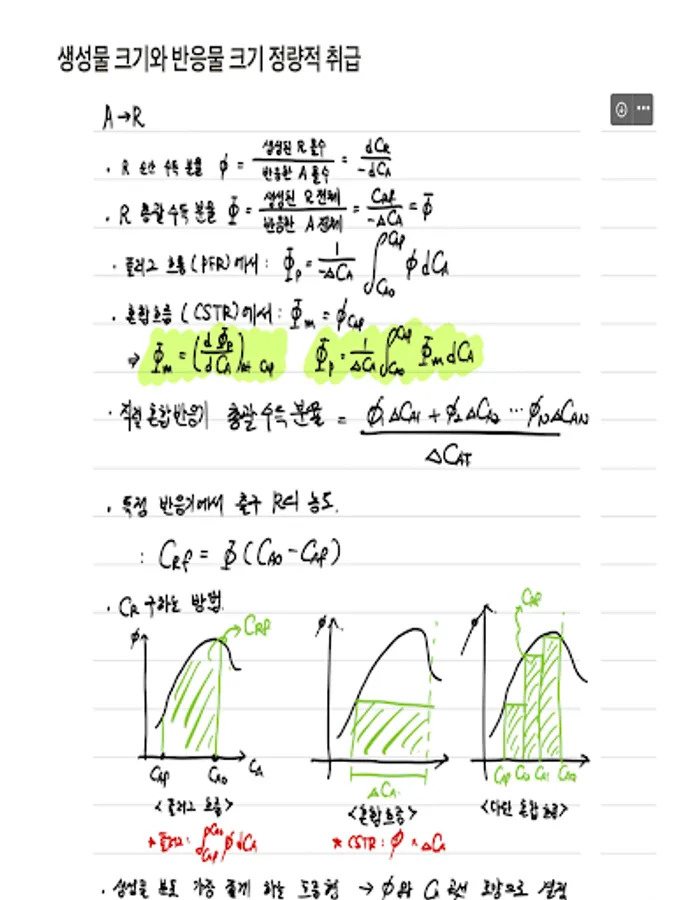 생성물 크기와 반응물 크기 정량적 취급
A→R
· R 순간 수득 분율 φ = 생성된 R 몰수 / 반응한 A 몰수 = dCR / -dCA
· R 총괄수득 분율 Φ = 생성된 R 전체 / 반응한 A 전체 = CRf / -ΔCA = φ̄
· 플러그 흐름(PFR)에서 : Φp = 1/-ΔCA ∫CA0^CAf φ dCA
· 혼합흐름 (CSTR)에서 : Φm = φCAf
⇒ Φm = (dΦp/dCA)at CAf Φp = 1/ΔCA ∫CA0^CAf Φm dCA
· 직렬 혼합반응기 총괄수득분율 = φ1ΔCA1 + φ2ΔCA2 ··· φNΔCAN / ΔCAT
· 특정 반응기에서 출구 R의 농도.
: CRf = Φ(CA0 - CAf)
· CR 구하는 방법.
φ CRf φ φ CAf
CAf CA0 CA ΔCA CAf CA1 CA0
<플러그 흐름> <혼합흐름> <다단 혼합흐름>
* 플러그 : ∫CAf^CA0 φ dCA * CSTR : φ × ΔCA
· 생성물 분포 가장 좋게 하는 도형형 → φ와 CA 곡선 모양으로 결정